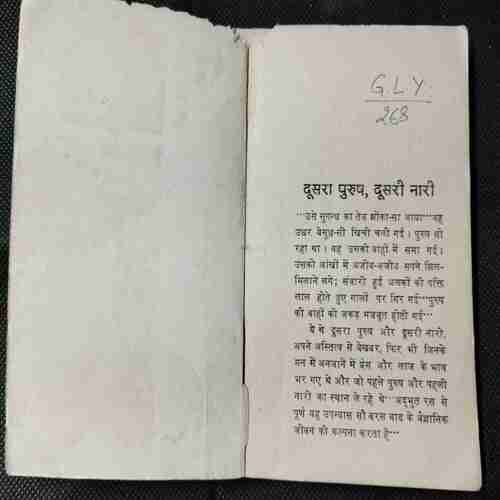 G.L.Y.
268
दूसरा पुरुष, दूसरी नारी
···उसे सुगन्ध का तेज झोंका-सा आया···वह
उधर बेसुध-सी खिंची चली गई। पुरुष सो
रहा था। वह उसकी बाहों में समा गई।
उसकी आंखों में अजीब-अजीब सपने झिल-
मिलाने लगे; संवारी हुई अलकों की पंक्ति
लाल होते हुए गालों पर घिर गई···पुरुष
की बाहों की जकड़ मजबूत होती गई···
ये थे दूसरा पुरुष और दूसरी नारी,
अपने अस्तित्व से बेखबर, फिर भी जिनके
मन में अनजाने में प्रेम और लाज के भाव
भर गए थे और जो पहले पुरुष और पहली
नारी का स्थान ले रहे थे···अद्भुत रस से
पूर्ण यह उपन्यास सौ बरस बाद के वैज्ञानिक
जीवन की कल्पना करता है···